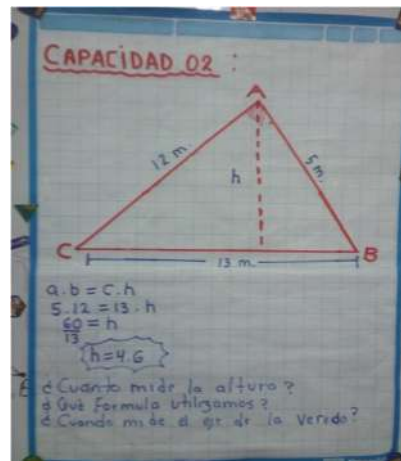 CAPACIDAD 02 :
A
12 m.
h
5 m.
C
B
13 m.
a.b = c.h
5.12 = 13.h
60/13 = h
h=4.6
¿Cuánto mide la altura?
¿Qué Formula utilizamos?
¿Cuando mide el eje de la vereda?